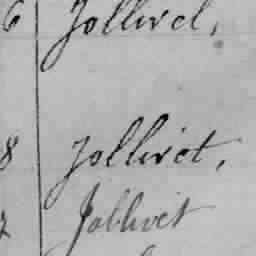 6 Jollivet,
8 Jollivet,
Jollivet